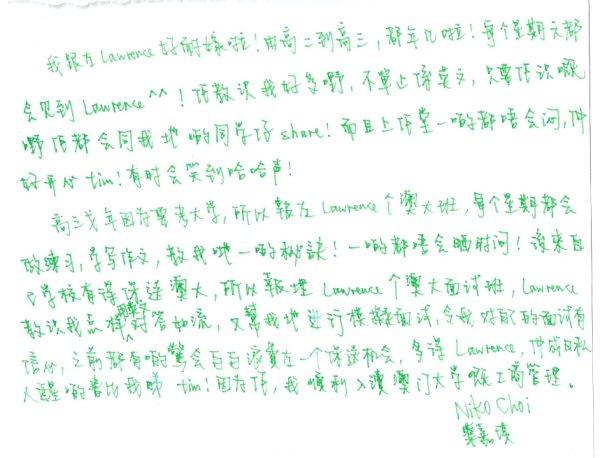 我跟左Lawrence好耐嫁啦!由高二到高三,都年几啦!每个星期六都
会见到Lawrence^^!佢教识我好多嘢,不單止係英文,只要佢识嘅
嘢佢都会同我地啲同学仔share!而且上佢堂一啲都唔会闷,仲
好开心tim!有时会笑到哈哈声!
高三年因为要考大学,所以報左Lawrence个澳大班,每个星期都会
做練习,学写作文,教我哋一啲秘訣!一啲都唔会晒时问!後來自
己学校有得保送澳大,所以報埋Lawrence个澳大面试班,Lawrence
教识我点样對答如流,又幫我地进行模擬面试,令我对自己的面试有
信心,之前都有啲驚会白白浪費左一个保送机会,多得Lawrence,仲成日私
人醒啲書比我睇tim!因为佢,我顺利入讀澳门大学嘅工商管理。
Niko Choi
嘉琪